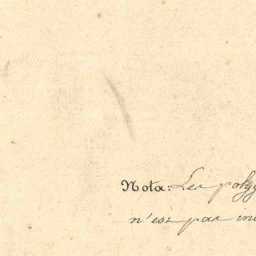 Nota: Les polyg
n'est pas in